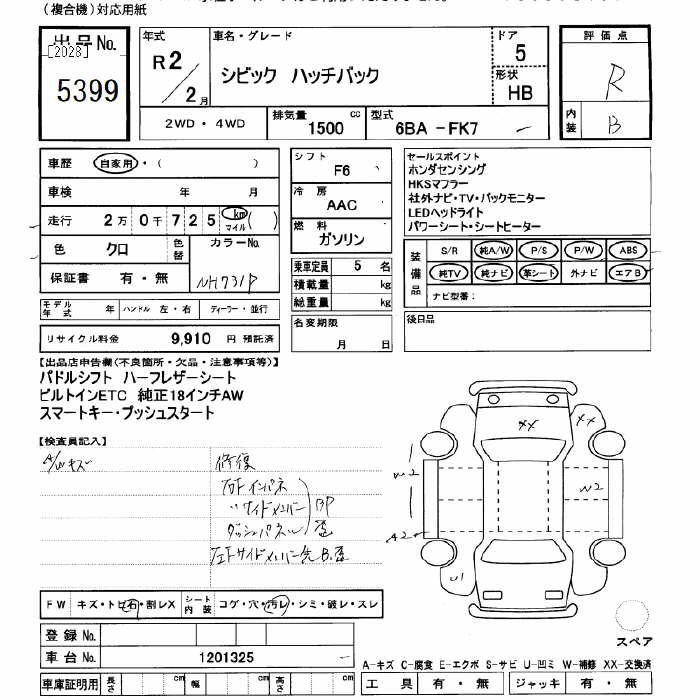 (複合機)対応用紙
出品No.
[2028]
5399
年式
R2/2月
車名・グレード
シビック ハッチバック
ドア
5
形状
HB
評価点
R
内装
B
2WD・4WD
排気量
1500 cc
型式
6BA-FK7
車歴 自家用・( )
車検 年 月
走行 2万0千725 km マイル( )
色 クロ 色替 カラーNo. NH731P
保証書 有・無
モデル年式 年 ハンドル 左・右 ディーラー・並行
リサイクル料金 9,910 円 預託済
シフト
F6
冷房
AAC
燃料
ガソリン
乗車定員 5 名
積載量 kg
総重量 kg
名変期限
月 日
セールスポイント
ホンダセンシング
HKSマフラー
社外ナビ・TV・バックモニター
LEDヘッドライト
パワーシート・シートヒーター
装備品
S/R 純A/W P/S P/W ABS
純TV 純ナビ 革シート 外ナビ エアB
ナビ型番:
後日品
【出品店申告欄(不良箇所・欠品・注意事項等)】
パドルシフト ハーフレザーシート
ビルトインETC 純正18インチAW
スマートキー・プッシュスタート
【検査員記入】
A/Wキズ
修復
右Fインパネ
〃サイドメンバー
ダッシュパネル
BP
歪
左Fサイドメンバー先B.歪
XX
XX
W2
W2
A2
U1
FW キズ・トビ石・割レX
シート内装 コゲ・穴・汚レ・シミ・破レ・スレ
登録No.
車台No. 1201325
車庫証明用 長さ cm 幅 cm 高さ cm
スペア
A-キズ C-腐食 E-エクボ S-サビ U-凹ミ W-補修 XX-交換済
工具 有・無 ジャッキ 有・無